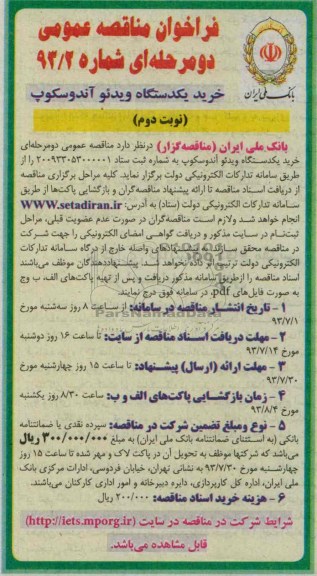 فراخوان مناقصه عمومی
دومرحله‌ای شماره ۹۳/۲
بانک ملی ایران
خرید یکدستگاه ویدئو آندوسکوپ
(نوبت دوم)
بانک ملی ایران (مناقصه‌گزار) درنظر دارد مناقصه عمومی دومرحله‌ای
خرید یکدستگاه ویدئو آندوسکوپ به شماره ثبت ستاد ۲۰۰۹۳۳۰۵۳۰۰۰۰۰۱ را از
طریق سامانه تدارکات الکترونیکی دولت برگزار نماید. کلیه مراحل برگزاری مناقصه
از دریافت اسناد مناقصه تا ارائه پیشنهاد مناقصه‌گران و بازگشایی پاکت‌ها از طریق
سامانه تدارکات الکترونیکی دولت (ستاد) به آدرس: WWW.setadiran.ir
انجام خواهد شد ولازم است مناقصه‌گران در صورت عدم عضویت قبلی، مراحل
ثبت‌نام در سایت مذکور و دریافت گواهی امضای الکترونیکی را جهت شرکت
در مناقصه محقق سازند. پیشنهادهای واصله خارج از درگاه سامانه تدارکات
الکترونیکی دولت ترتیب اثر داده نخواهد شد. پیشنهاددهندگان موظف می‌باشند
اسناد مناقصه را ازطریق سامانه مذکور دریافت و پس از تهیه پاکت‌های الف، ب وج
به صورت فایل‌های pdf، در سامانه فوق درج نمایند.
۱ - تاریخ انتشار مناقصه در سامانه: از ساعت ۸ روز سه‌شنبه مورخ
۹۳/۷/۱
۲ - مهلت دریافت اسناد مناقصه از سایت: تا ساعت ۱۶ روز دوشنبه
مورخ ۹۳/۷/۱۴
۳ - مهلت ارائه (ارسال) پیشنهاد: تا ساعت ۱۵ روز چهارشنبه مورخ
۹۳/۷/۳۰
۴ - زمان بازگشایی پاکت‌های الف و ب: ساعت ۸/۳۰ روز یکشنبه
مورخ ۹۳/۸/۴
۵ - نوع ومبلغ تضمین شرکت در مناقصه: سپرده نقدی یا ضمانتنامه
بانکی (به استثنای ضمانتنامه بانک ملی ایران) به مبلغ ۳۰۰/۰۰۰/۰۰۰ ریال
می‌باشد که شرکتها موظف به تحویل آن در پاکت لاک و مهر شده تا ساعت ۱۵ روز
چهارشنبه مورخ ۹۳/۷/۳۰ به نشانی تهران، خیابان فردوسی، ادارات مرکزی بانک
ملی ایران، اداره کل کارپردازی، دایره دبیرخانه و امور اداری کارکنان می‌باشند.
۶ - هزینه خرید اسناد مناقصه: ۲۰۰/۰۰۰ ریال
شرایط شرکت در مناقصه در سایت (http://iets.mporg.ir)
قابل مشاهده می‌باشد.